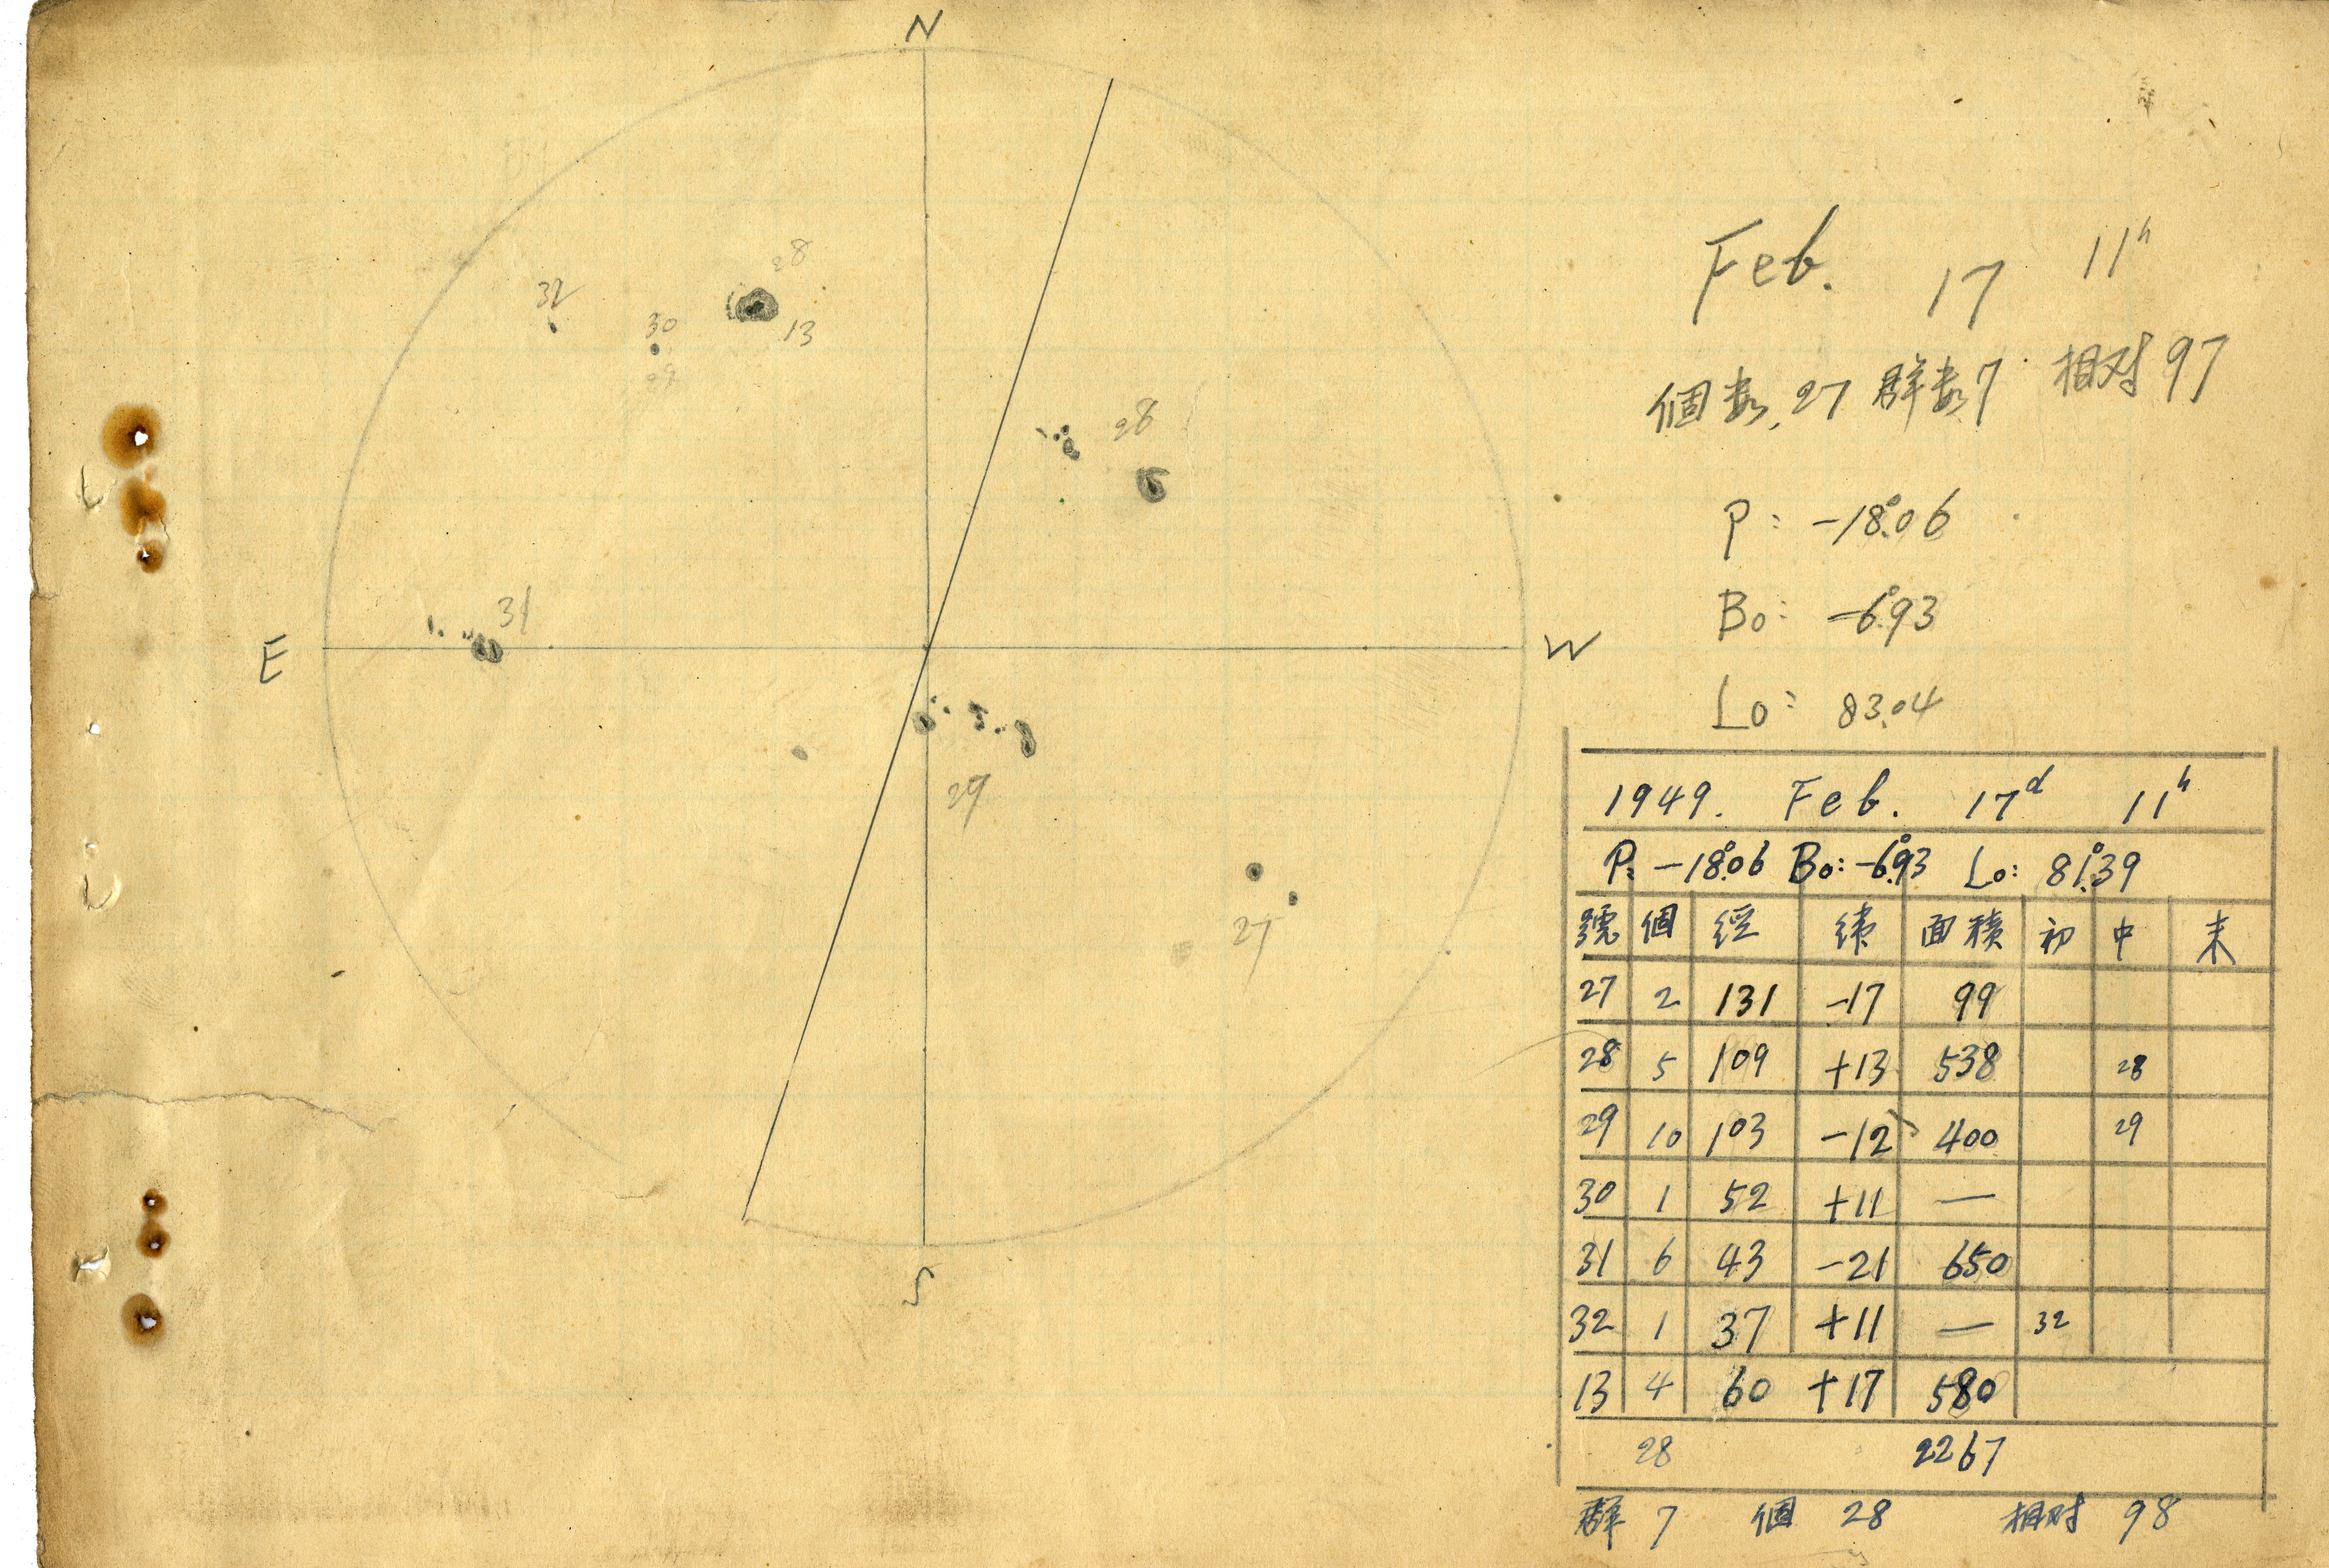 N
28
32
30
13
28
31
E
W
29
27
S
Feb. 17 11h
個数 27 群数 7 相対 97
P: -18°.06
B0: -6°.93
L0: 83.04
1949. Feb. 17d 11h
P: -18°.06 B0: -6°.93 L0: 81°.39
號 個 経 緯 面積 初 中 末
27 2 131 -17 99
28 5 109 +13 538 28
29 10 103 -12 400 29
30 1 52 +11 —
31 6 43 -21 650
32 1 37 +11 — 32
13 4 60 +17 580
28 2267
群 7 個 28 相対 98